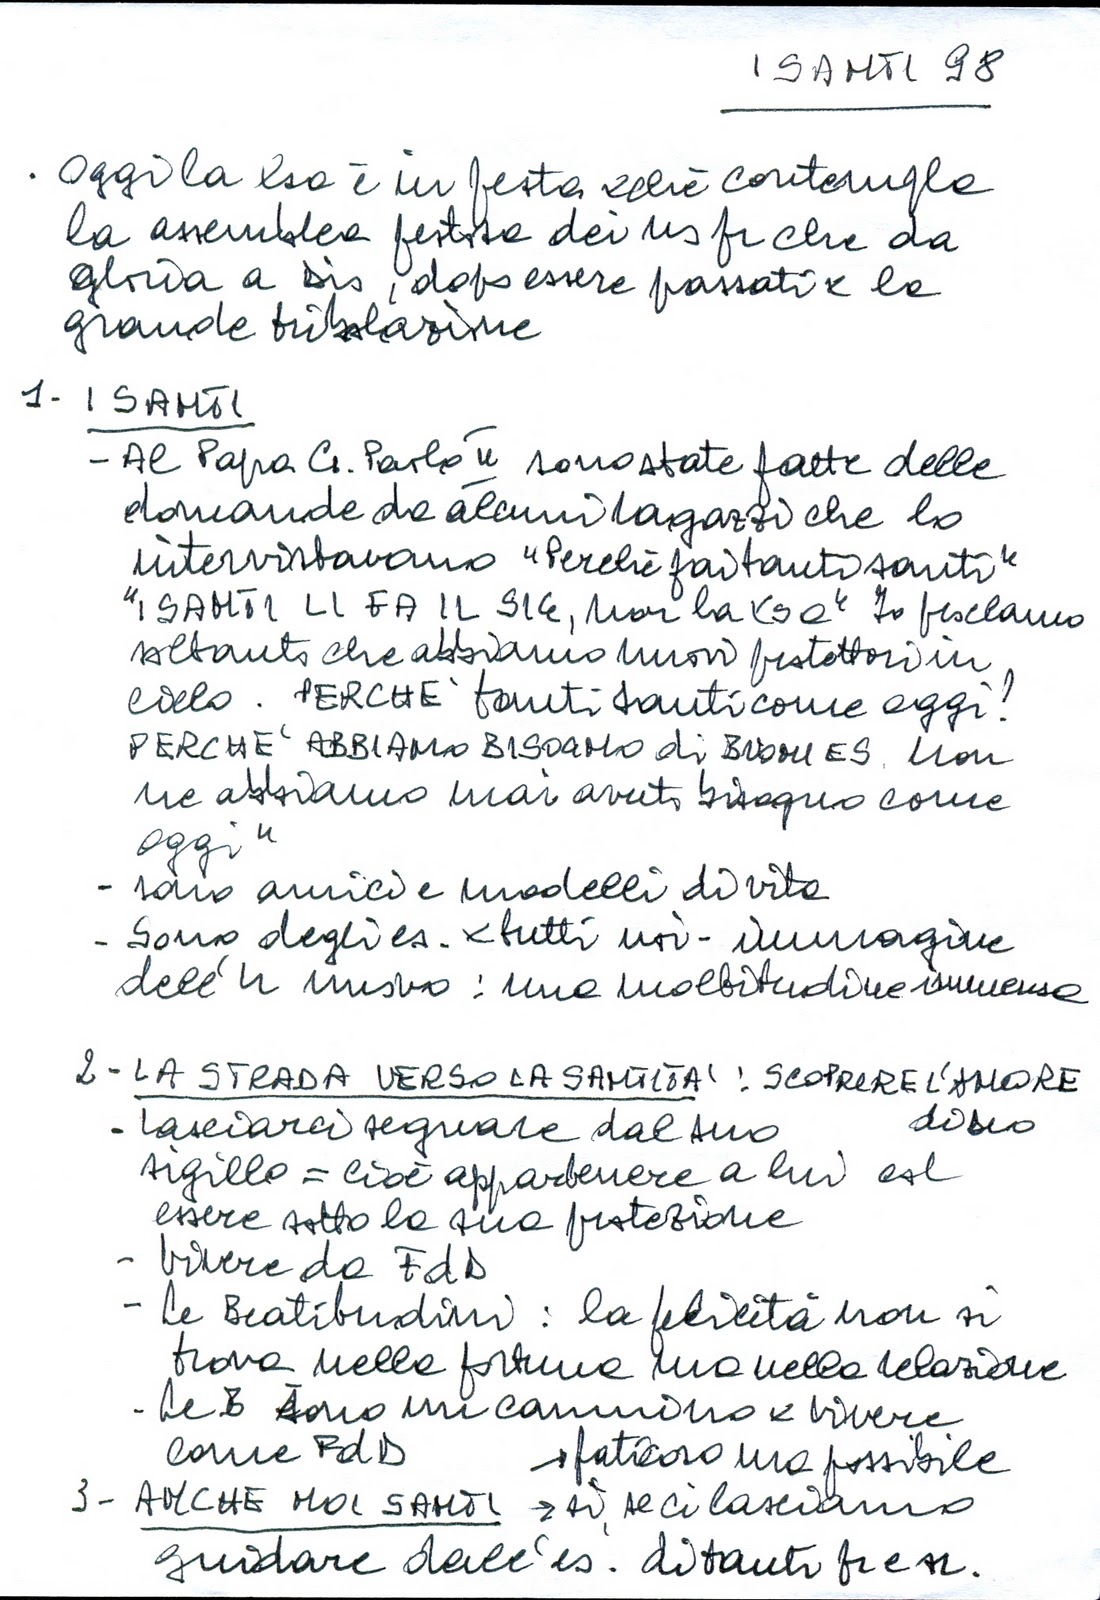 I SANTI 98
. Oggi la Ksa è in festa xchè contempla
la assemblea festosa dei ns fr che da
gloria a Dio, dopo essere passati x la
grande tribolazione
1- I SANTI
- Al Papa G. Paolo II sono state fatte delle
domande da alcuni ragazzi che lo
intervistavano "Perchè fai tanti santi"
"I SANTI LI FA IL SIG, non la Ksa" Io proclamo
soltanto che abbiamo nuovi protettori in
cielo. PERCHE' tanti santi come oggi?
PERCHE' ABBIAMO BISOGNO di BUONI ES. Non
ne abbiamo mai avuto bisogno come
oggi"
- sono amici e modelli di vita
- Sono degli es. x tutti noi - immagine
dell'U nuovo : una moltitudine immensa
2- LA STRADA VERSO LA SANTITA' : SCOPRIRE L'AMORE
di Dio
- Lasciarci segnare dal suo
sigillo = cioè appartenere a lui ed
essere sotto la sua protezione
- Vivere da FdD
- Le Beatitudini : la felicità non si
trova nella fortuna ma nella relazione
- Le B sono un cammino x vivere
come FdD → faticoso ma possibile
3- ANCHE NOI SANTI → sì, se ci lasciamo
guidare dall'es. di tanti fr e sr.